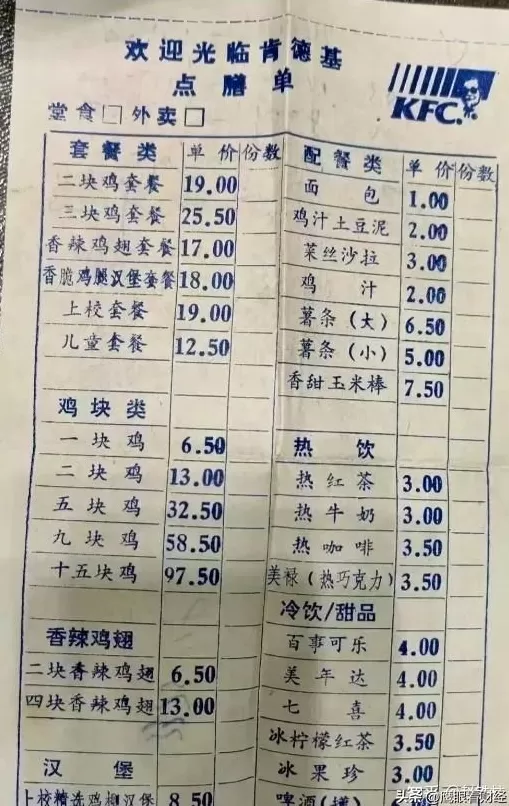 欢迎光临肯德基
点膳单
KFC
堂食□外卖□
套餐类 单价 份数
二块鸡套餐 19.00
三块鸡套餐 25.50
香辣鸡翅套餐 17.00
香脆鸡腿汉堡套餐 18.00
上校套餐 19.00
儿童套餐 12.50
鸡块类
一块鸡 6.50
二块鸡 13.00
五块鸡 32.50
九块鸡 58.50
十五块鸡 97.50
香辣鸡翅
二块香辣鸡翅 6.50
四块香辣鸡翅 13.00
汉堡
上校精选鸡柳汉堡 8.50
配餐类 单价 份数
面包 1.00
鸡汁土豆泥 2.00
菜丝沙拉 3.00
鸡汁 2.00
薯条(大) 6.50
薯条(小) 5.00
香甜玉米棒 7.50
热饮
热红茶 3.00
热牛奶 3.00
热咖啡 3.50
美禄(热巧克力) 3.50
冷饮/甜品
百事可乐 4.00
美年达 4.00
七喜 4.00
冰柠檬红茶 3.50
冰果珍 3.00
啤酒
头条@鹰眼看财经